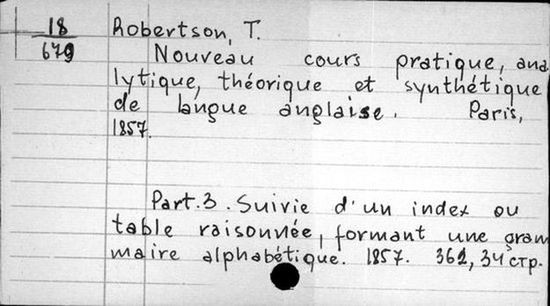 18 Robertson, T.
679 Nouveau cours pratique, ana
lytique, théorique et synthétique
de langue anglaise. Paris,
1857.
Part.3. Suivie d'un index ou
table raisonnée, formant une gram
maire alphabétique. 1857. 362, 34 стр.